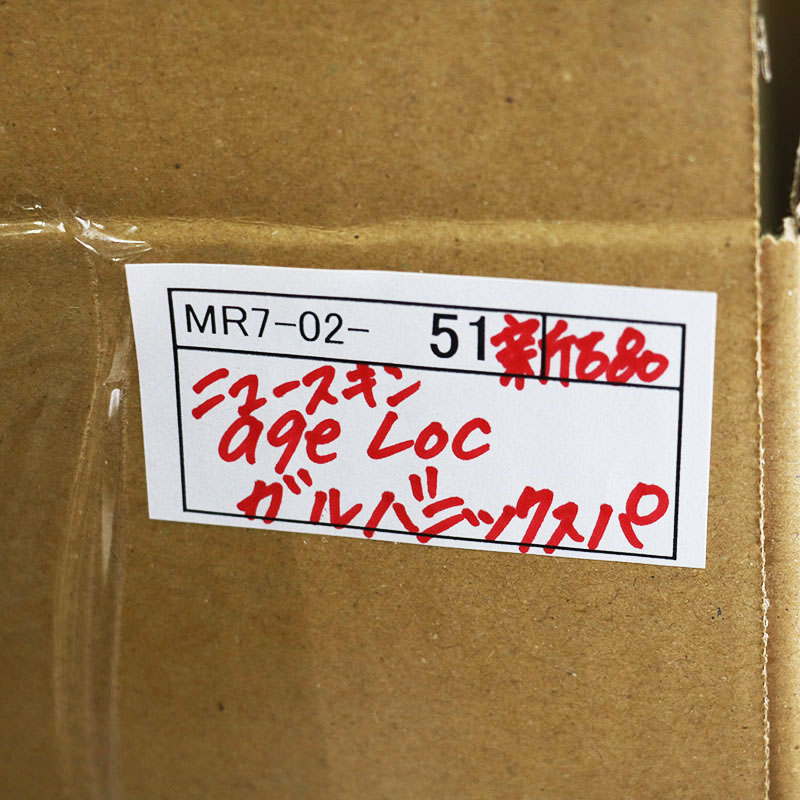 MR7-02- 51 新品680
ニュースキン
age Loc
ガルバニックスパ